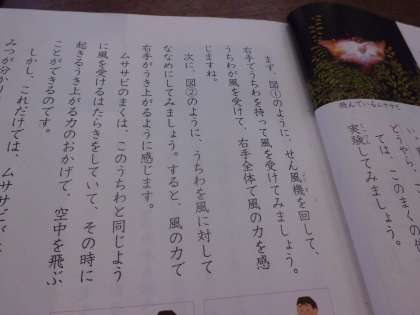 飛んでいるムササビ
では、このまくの
実験してみましょう。
まず、図①のように、せん風機を回して、
右手でうちわを持って風を受けてみましょう。
うちわが風を受けて、右手全体で風の力を感
じますね。
次に、図②のように、うちわを風に対して
ななめにしてみましょう。すると、風の力で
右手がうき上がるように感じます。
ムササビのまくは、このうちわと同じよう
に風を受けるはたらきをしていて、その時に
起きるうき上がる力のおかげで、空中を飛ぶ
ことができるのです。
しかし、これだけでは、ムササビが
みつが分かり